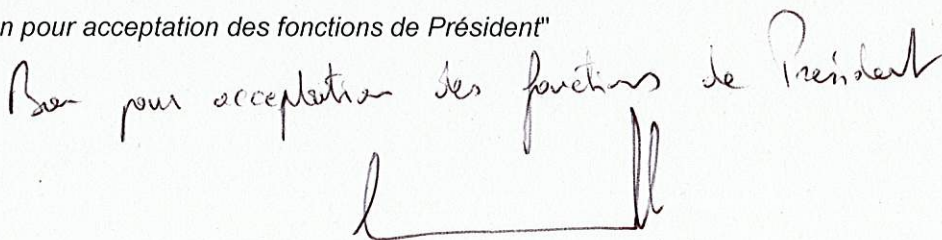 n pour acceptation des fonctions de Président"
Bon pour acceptation des fonctions de Président